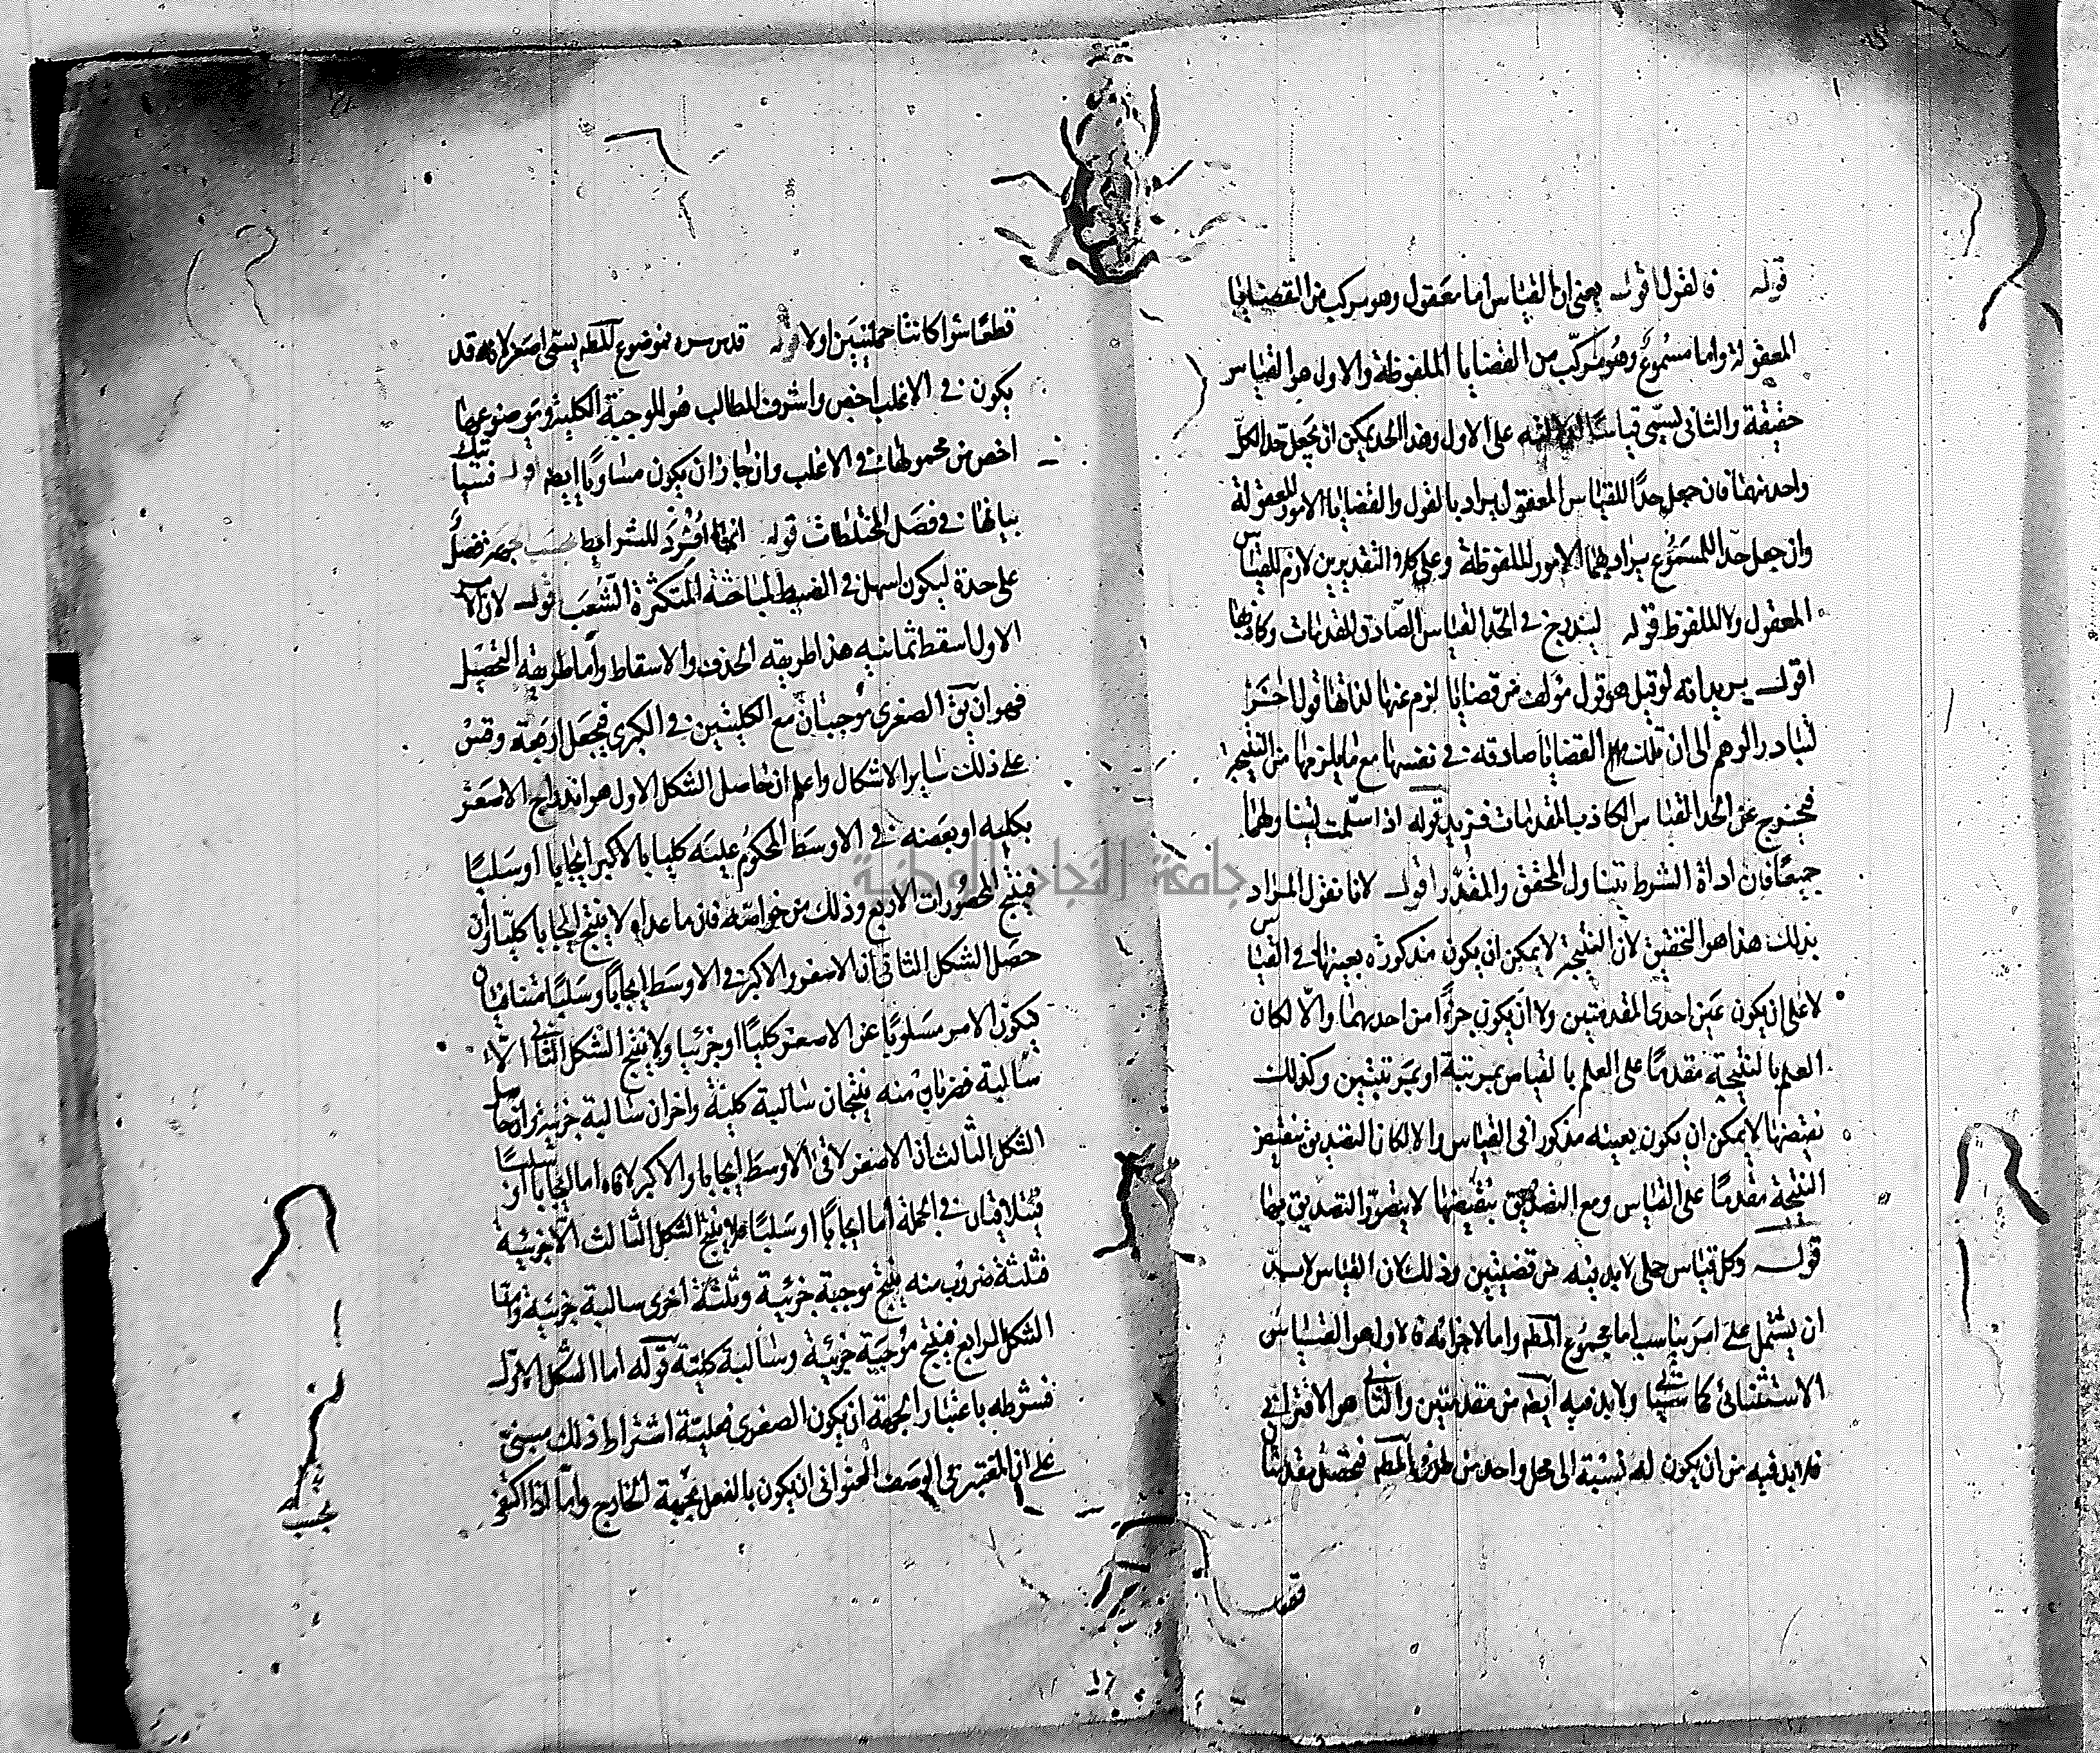 قوله فالقول اقول يعنى ان القياس اما معقول وهو مركب من القضايا
المعقولة واما مسموع وهو مركب من القضايا الملفوظة والاول هو القياس
حقيقة والثانى يسمى قياسا لدلالته على الاول وهذا الحد يمكن ان يجعل حد الكل
واحد منهما فان جعل حدا للقياس المعقول يراد بالقول والقضايا الامور المعقولة
وان جعل حدا للمسموع يراد بهما الامور الملفوظة وعلى كلا التقديرين لازم للقياس
المعقول ولا للملفوظ قوله ليندرج فى الحد القياس الصادق المقدمات وكاذبها
اقول يريد انه لو قيل هو قول مؤلف من قضايا لزم عنها لذاتها قول اخر
لتبادر الوهم الى ان تلك القضايا صادقه فى نفسها مع ما يلزمها من النتيجة
فيخرج عن الحد القياس الكاذب المقدمات فزيد قوله اذا سلمت ليتناولهما
جميعا فان اداة الشرط تتناول المحقق والمقدر اقول لانا نقول المراد
بذلك هذا هو التحقيق لان النتيجة لا يمكن ان يكون مذكورة بعينها فى القياس
لا على ان يكون عين احدى المقدمتين ولا ان يكون جزءا من احدهما والا لكان
العلم بالنتيجة مقدما على العلم بالقياس بمرتبة او بمرتبتين وكذلك
نقيضها لا يمكن ان يكون بعينه مذكورا فى القياس والا لكان التصديق بنقيض
النتيجة مقدما على القياس ومع التصديق بنقيضها لا يتصور التصديق بها
قوله وكل قياس حملى لابد فيه من قضيتين وذلك لان القياس لا بد
ان يشتمل على امر يناسب اما مجموع المط واما لاجزائه فالاول هو القياس
الاستثنائى كما سياتى ولابد فيه ايضا من مقدمتين والثانى هو الاقترانى
فلابد فيه من ان يكون له نسبة الى كل واحد من طرفى المط فتحصل مقدمتان
قطعا
قطعا سوا كانتا حمليتين او لا قوله قدس سره موضوع المط يسمى اصغر لانه قد
يكون فى الاغلب اخص واشرف المطالب هو الموجبة الكلية وموضوعها
اخص من محمولها فى الاغلب وان جاز ان يكون مساويا ايضا قوله فسياتيك
بيانها فى فصل المختلطات قوله انما افرد للشرايط بحسب الجهة فصل
على حدة ليكون اسهل فى الضبط لمباحثة المتكثرة الشعب قوله لان
الاول اسقط ثمانيه هذا طريقه الحذف والاسقاط واما طريقه التحصيل
فهو ان الصغرى موجبتان مع الكليتين فى الكبرى فيجعل اربعة وقس
على ذلك ساير الاشكال واعلم ان حاصل الشكل الاول هو اندراج الاصغر
بكليه او بعضه فى الاوسط المحكوم عليه كليا بالاكبر ايجابا او سلبا
فينتج المحصورات الاربع وذلك من خواصه فان ما عداه لا ينتج ايجابا كليا وان
حصل الشكل الثانى ان الاصغر والاكبر فى الاوسط ايجابا وسلبا متنافيان
فيكون الامر مسلوبا عن الاصغر كليا او جزئيا ولا ينتج الشكل الثانى الا
سالبة فضربان منه ينتجان سالبة كلية واخران سالبة جزئيه وان حاصل
الشكل الثالث ان الاصغر لاقى الاوسط ايجابا والاكبر لاقاه اما ايجابا او سلبا
فيتلاقيان فى الجملة اما ايجابا او سلبا فلا ينتج الشكل الثالث الا جزئيه
فثلثة ضروب منه ينتج موجبة جزئية وثلثة اخرى سالبة جزئية واما
الشكل الرابع فينتج موجبة جزئية وسالبة كلية قوله اما الشكل الاول
فشرطه باعتبار الجهة ان يكون الصغرى فعلية اشتراط ذلك مبنى
على ان المعتبر فى الوصف العنوانى ان يكون بالفعل بجهة الخارج واما اذا اكتفى
بحسب
جامعة النجاح الوطنية